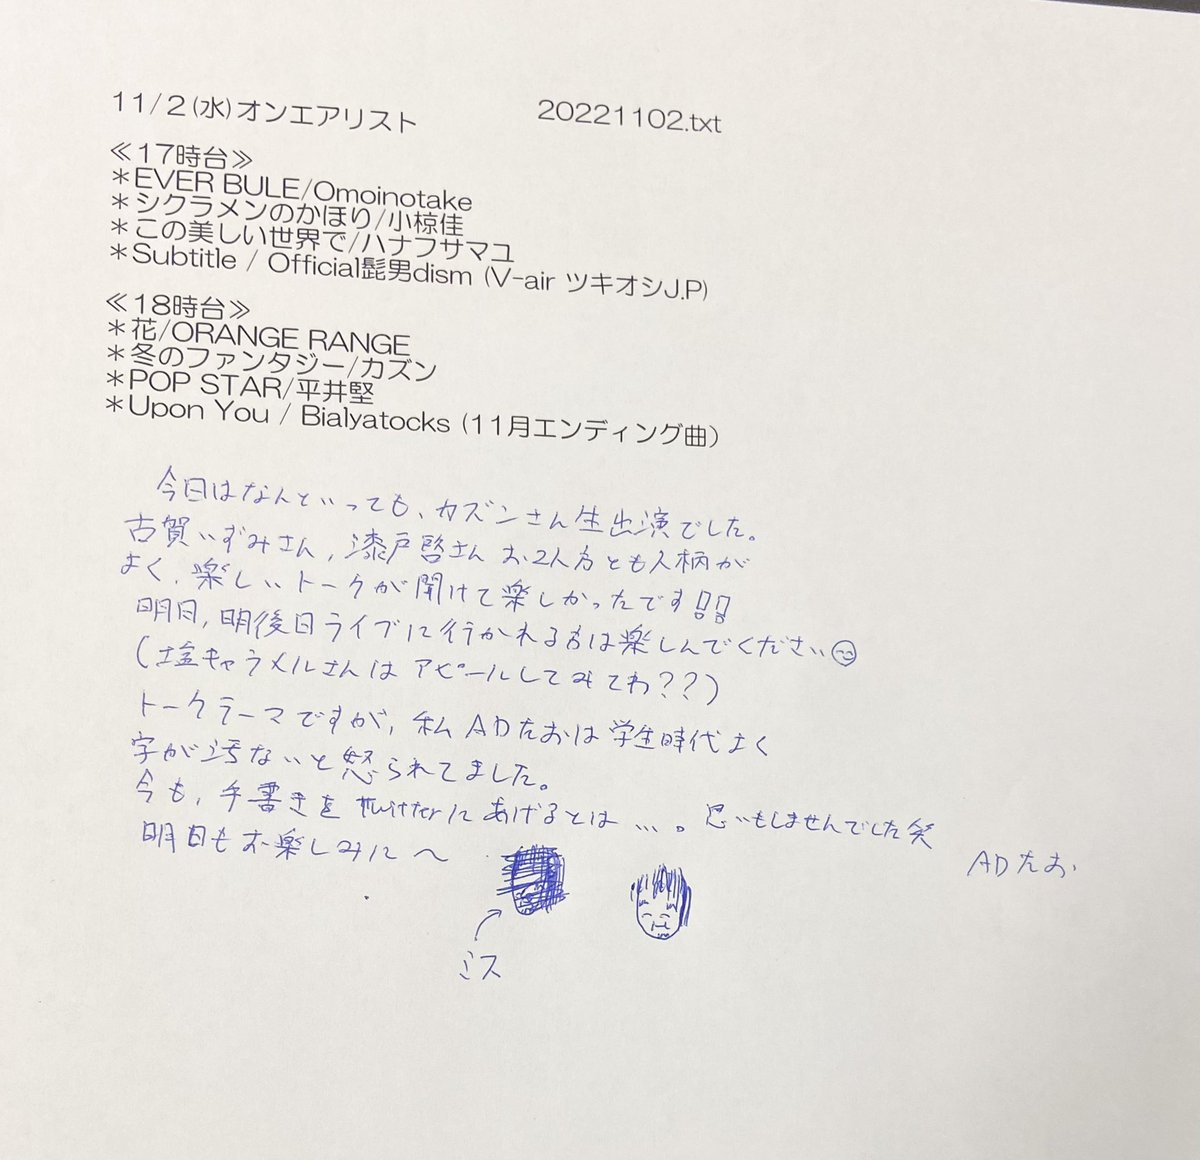 11/2(水)オンエアリスト 20221102.txt
≪17時台≫
*EVER BULE/Omoinotake
*シクラメンのかほり/小椋佳
*この美しい世界で/ハナフサマユ
*Subtitle / Official髭男dism (V-air ツキオシJ.P)
≪18時台≫
*花/ORANGE RANGE
*冬のファンタジー/カズン
*POP STAR/平井堅
*Upon You / Bialyatocks (11月エンディング曲)
今日はなんといっても、カズンさん生出演でした。
古賀いずみさん,漆戸啓さんお2人方とも人柄が
よく、楽しいトークが聞けて楽しかったです!!
明日,明後日ライブに行かれる方は楽しんでください
(塩キャラメルさんはアピールしてみてわ??)
トークテーマですが,私ADたおは学生時代よく
字が汚ないと怒られてました。
今も,手書きをtwitterにあげるとは…。思いもしませんでした笑
明日もお楽しみに〜
ADたお
ミス